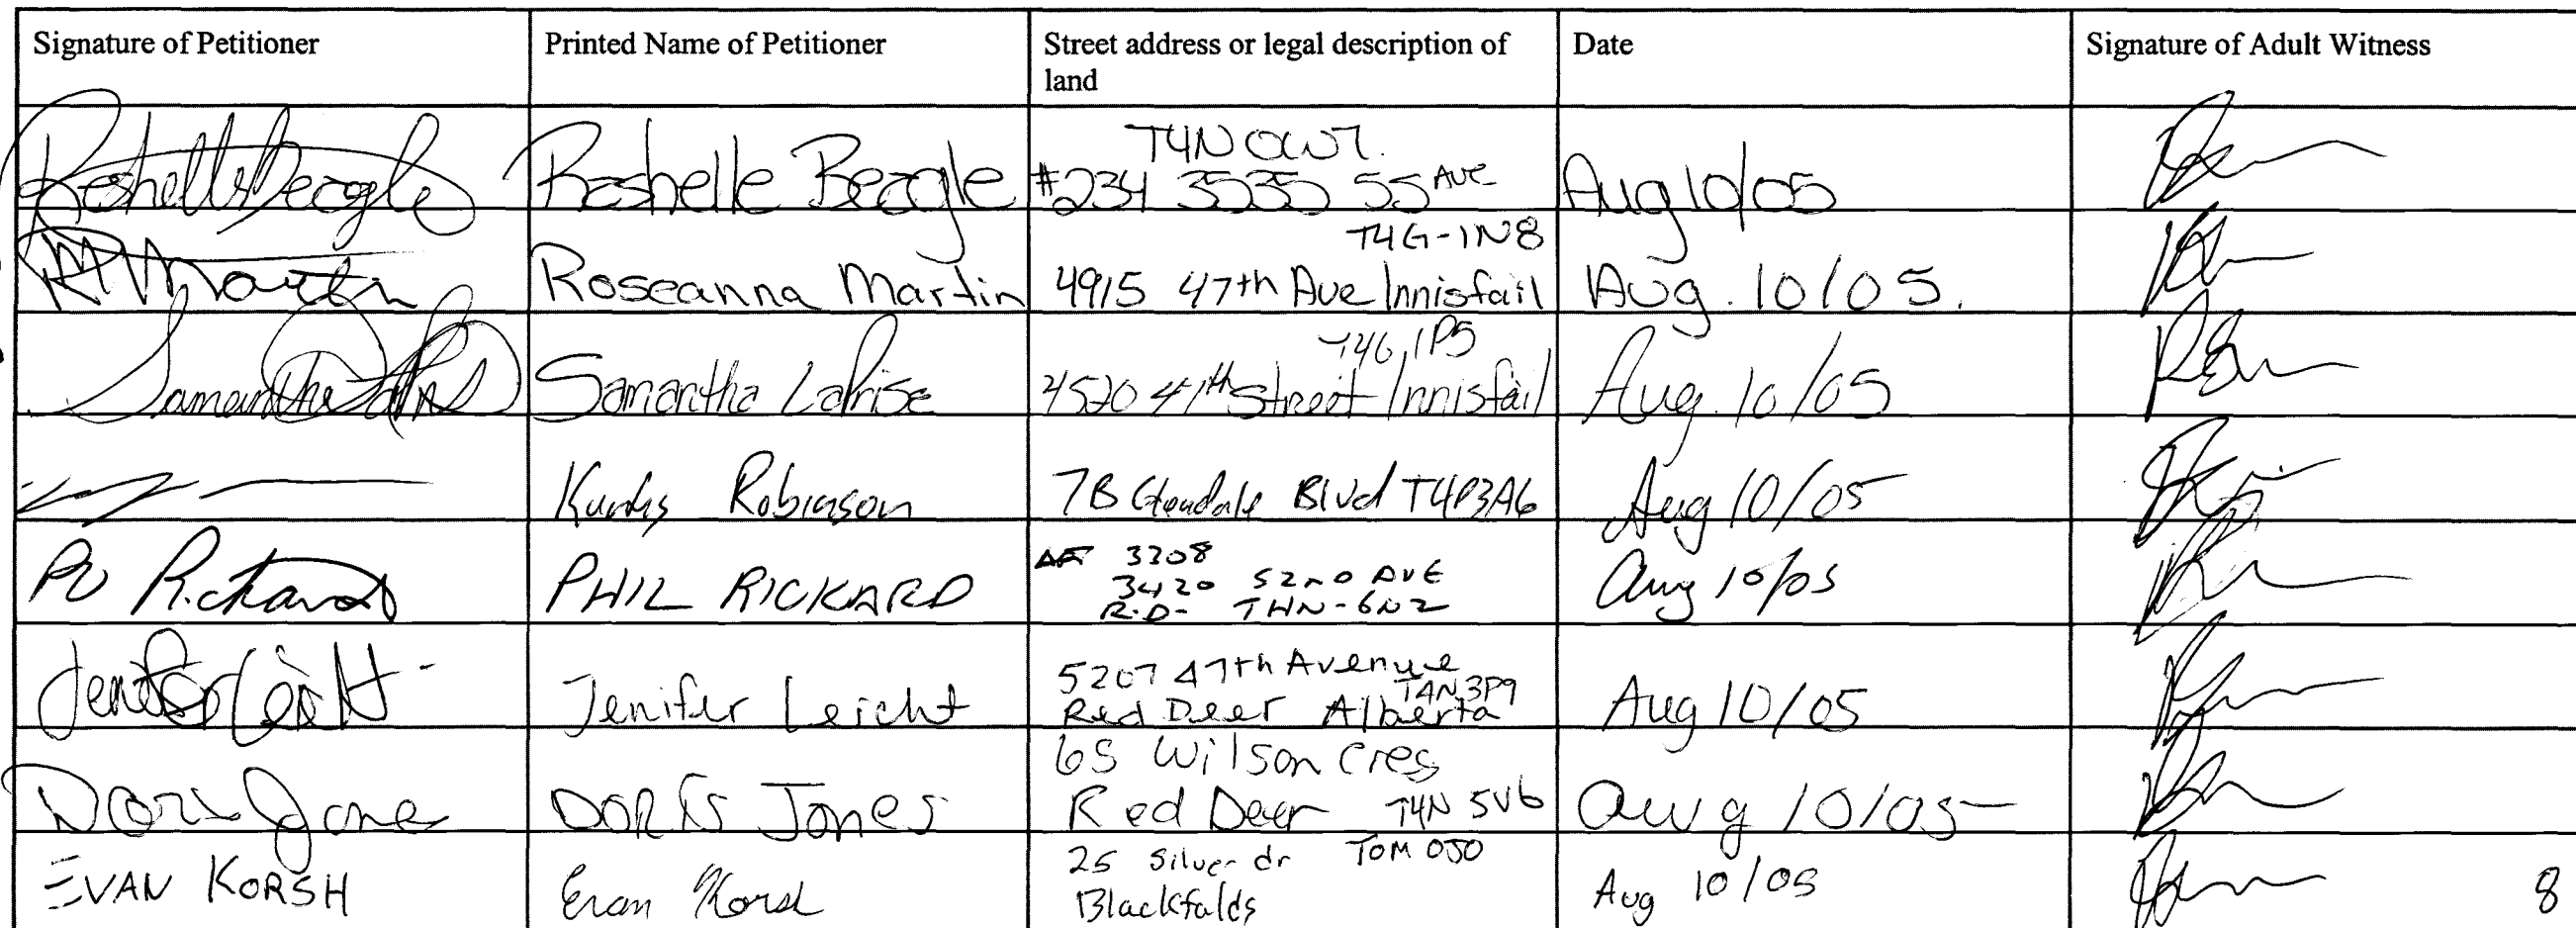 Signature of Petitioner
Printed Name of Petitioner
Street address or legal description of
land
Date
Signature of Adult Witness
Rashelle Beagle
Rashelle Beagle
T4N 0W7
#234 3535 55 Ave
Aug 10/05
R Martin
Roseanna Martin
T4G-1N8
4915 47th Ave Innisfail
Aug. 10/05.
Samantha
Samantha LaPrise
T4G 1P5
4520 47th Street Innisfail
Aug. 10/05
Robinson
7B Blvd T4P3A6
Aug 10/05
Rickard
PHIL RICKARD
3308
3420 52ND AVE
R.D- T4N-6N2
Aug 10/05
Jenifer Leicht
Jenifer Leicht
5207 47th Avenue
T4N 3P9
Red Deer Alberta
Aug 10/05
Doris Jones
DORIS Jones
65 Wilson Cres
Red Deer T4N 5V6
Aug 10/05
EVAN KORSH
Evan Korsh
25 Silver dr T0M 0J0
Blackfalds
Aug 10/05
8